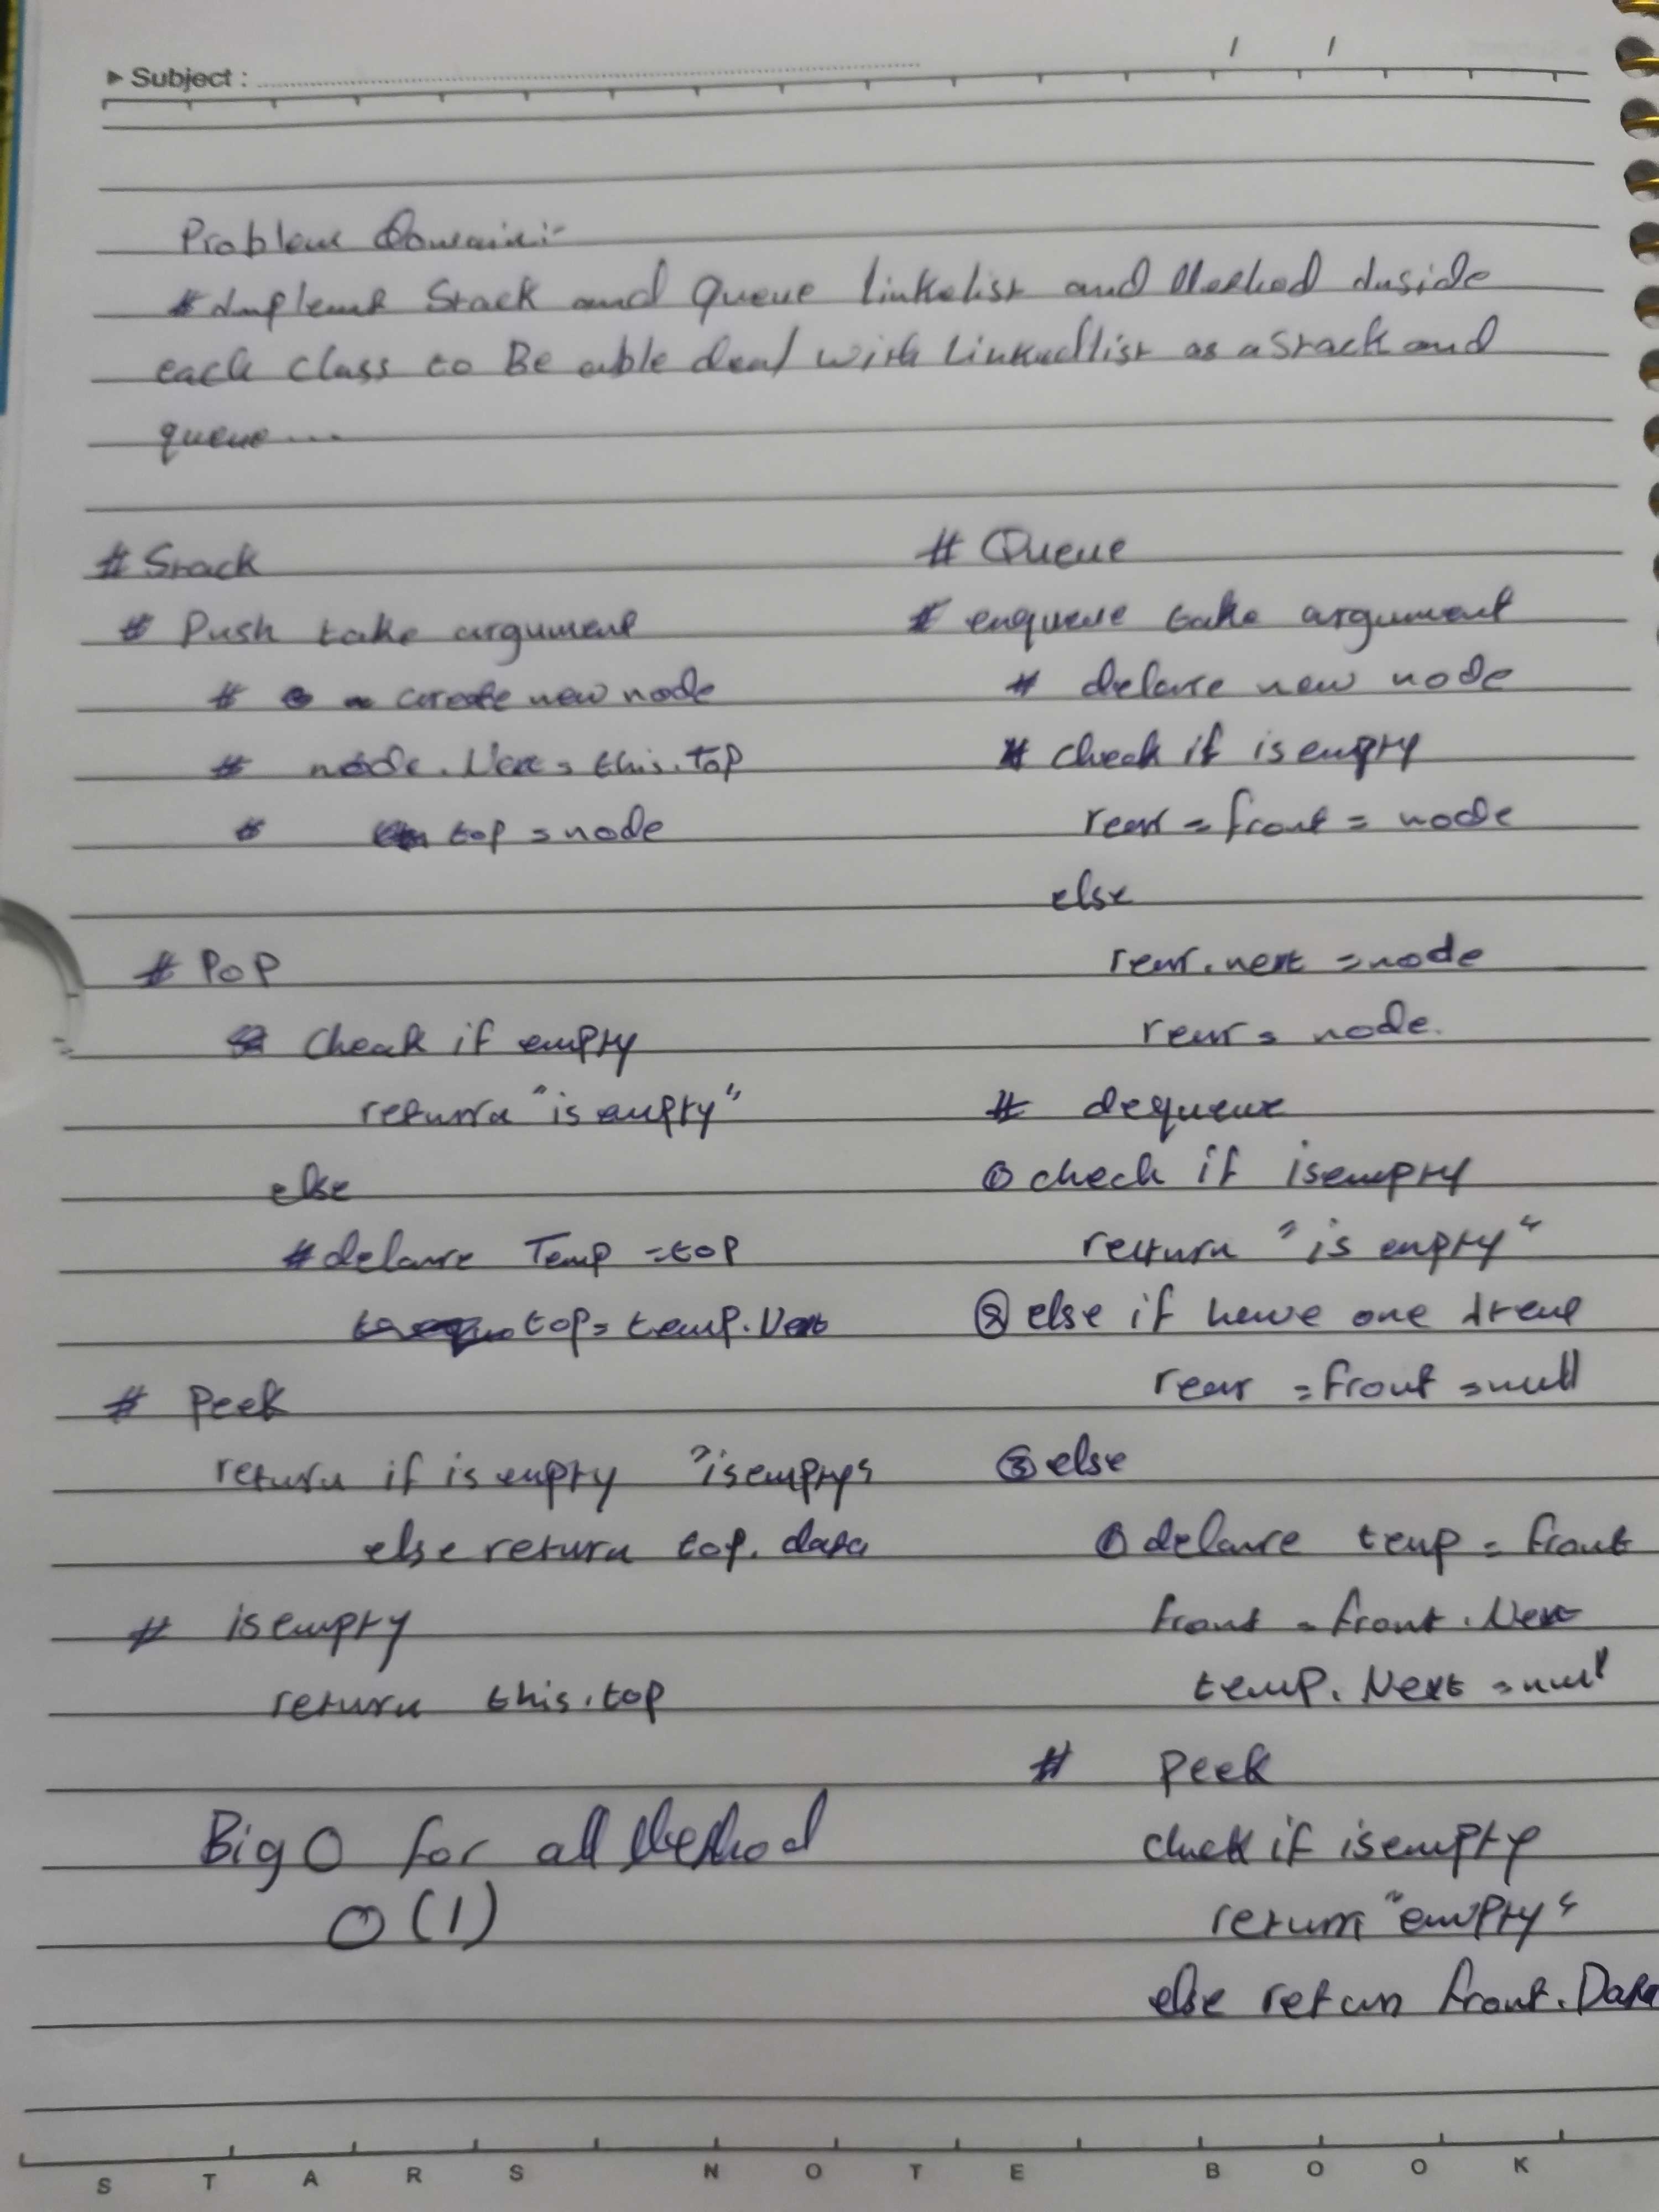 ▸ Subject :
/ /
Problem Domain:-
# Implemt Stack and Queue linkelist and Method Inside
each class to Be able deal with Linkedlist as a Stack and
queue...
# Stack
# Push take argument
# create new node
# node.Next = this.top
# top = node
# PoP
Cheak if empty
return "is empty"
else
# delare Temp = top
top = temp.Next
# Peek
return if is empty "isempty"
else return top.data
# isempty
return this.top
Big O for all Method
O(1)
# Queue
# enqueue take argument
# delare new node
# check if is empty
rear = front = node
else
rear.next = node
rear = node.
# dequeue
① check if isempty
return "is empty"
② else if have one
rear = front = null
③ else
① delare temp = front
front = front.Next
temp.Next = null
# Peek
chek if isempty
return "empty"
else retun front.Data
S T A R S N O T E B O O K